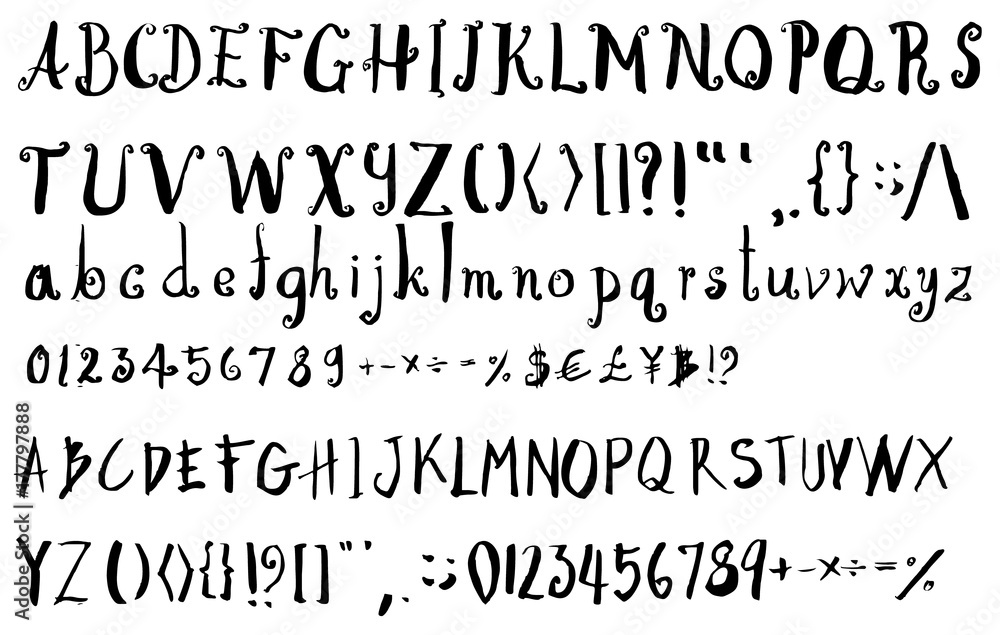 ABCDEFGHIJKLMNOPQRS
TUVWXYZ()〈〉[]?!“' ,.{}:;/\
abcdefghijklmnopqrstuvwxyz
0123456789+-×÷=%$€£¥฿!?
ABCDEFGHIJKLMNOPQRSTUVWX
YZ()〈〉{}!?[]"' ,.:;0123456789+-×÷=%
Adobe Stock | #177797888